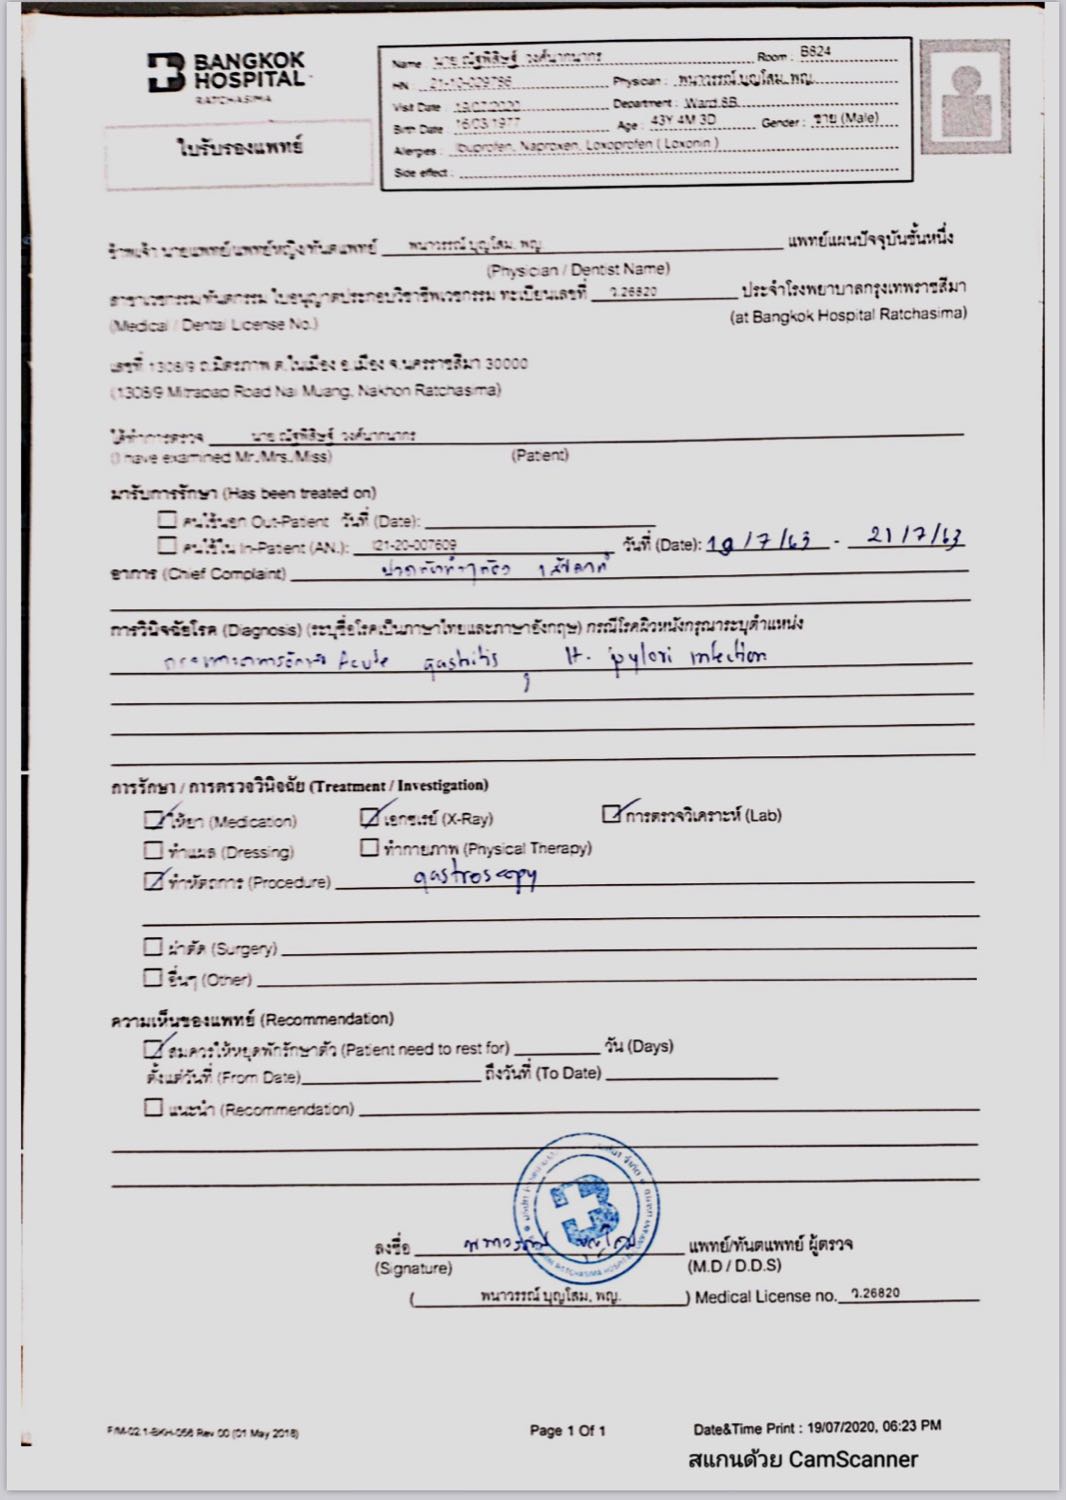 BANGKOK
HOSPITAL
RATCHASIMA
ใบรับรองแพทย์
Name : นาย ณัฐพิสิษฐ์ วงศ์นาถนากร Room : B824
HN : 21-10-029786 Physician : พนาวรรณ์ บุญโสม, พญ.
Visit Date : 19/07/2020 Department : Ward 8B
Birth Date : 16/03/1977 Age : 43Y 4M 3D Gender : ชาย (Male)
Allergies : Ibuprofen, Naproxen, Loxoprofen ( Loxonin )
Side effect :
ข้าพเจ้า นายแพทย์/แพทย์หญิง/ทันตแพทย์ พนาวรรณ์ บุญโสม, พญ. แพทย์แผนปัจจุบันชั้นหนึ่ง
(Physician / Dentist Name)
สาขาเวชกรรม/ทันตกรรม ใบอนุญาตประกอบวิชาชีพเวชกรรม ทะเบียนเลขที่ ว.26820 ประจำโรงพยาบาลกรุงเทพราชสีมา
(Medical / Dental License No.) (at Bangkok Hospital Ratchasima)
เลขที่ 1308/9 ถ.มิตรภาพ ต.ในเมือง อ.เมือง จ.นครราชสีมา 30000
(1308/9 Mitrapap Road Nai Muang, Nakhon Ratchasima)
ได้ทำการตรวจ นาย ณัฐพิสิษฐ์ วงศ์นาถนากร
(I have examined Mr./Mrs./Miss) (Patient)
มารับการรักษา (Has been treated on)
คนไข้นอก Out-Patient วันที่ (Date):
คนไข้ใน In-Patient (AN.): I21-20-007609 วันที่ (Date): 19/7/63 - 21/7/63
อาการ (Chief Complaint) ปวดท้อง
การวินิจฉัยโรค (Diagnosis) (ระบุชื่อโรคเป็นภาษาไทยและภาษาอังกฤษ) กรณีโรคผิวหนังกรุณาระบุตำแหน่ง
Acute gastritis, H. pylori infection
การรักษา / การตรวจวินิจฉัย (Treatment / Investigation)
ให้ยา (Medication) เอกซเรย์ (X-Ray) การตรวจวิเคราะห์ (Lab)
ทำแผล (Dressing) ทำกายภาพ (Physical Therapy)
ทำหัตถการ (Procedure) gastroscopy
ผ่าตัด (Surgery)
อื่นๆ (Other)
ความเห็นของแพทย์ (Recommendation)
สมควรให้หยุดพักรักษาตัว (Patient need to rest for) วัน (Days)
ตั้งแต่วันที่ (From Date) ถึงวันที่ (To Date)
แนะนำ (Recommendation)
ลงชื่อ พนาวรรณ์ บุญโสม แพทย์/ทันตแพทย์ ผู้ตรวจ
(Signature) (M.D / D.D.S)
( พนาวรรณ์ บุญโสม, พญ. ) Medical License no. ว.26820
F/M-02.1-BKH-056 Rev 00 (01 May 2018) Page 1 Of 1 Date&Time Print : 19/07/2020, 06:23 PM
สแกนด้วย CamScanner